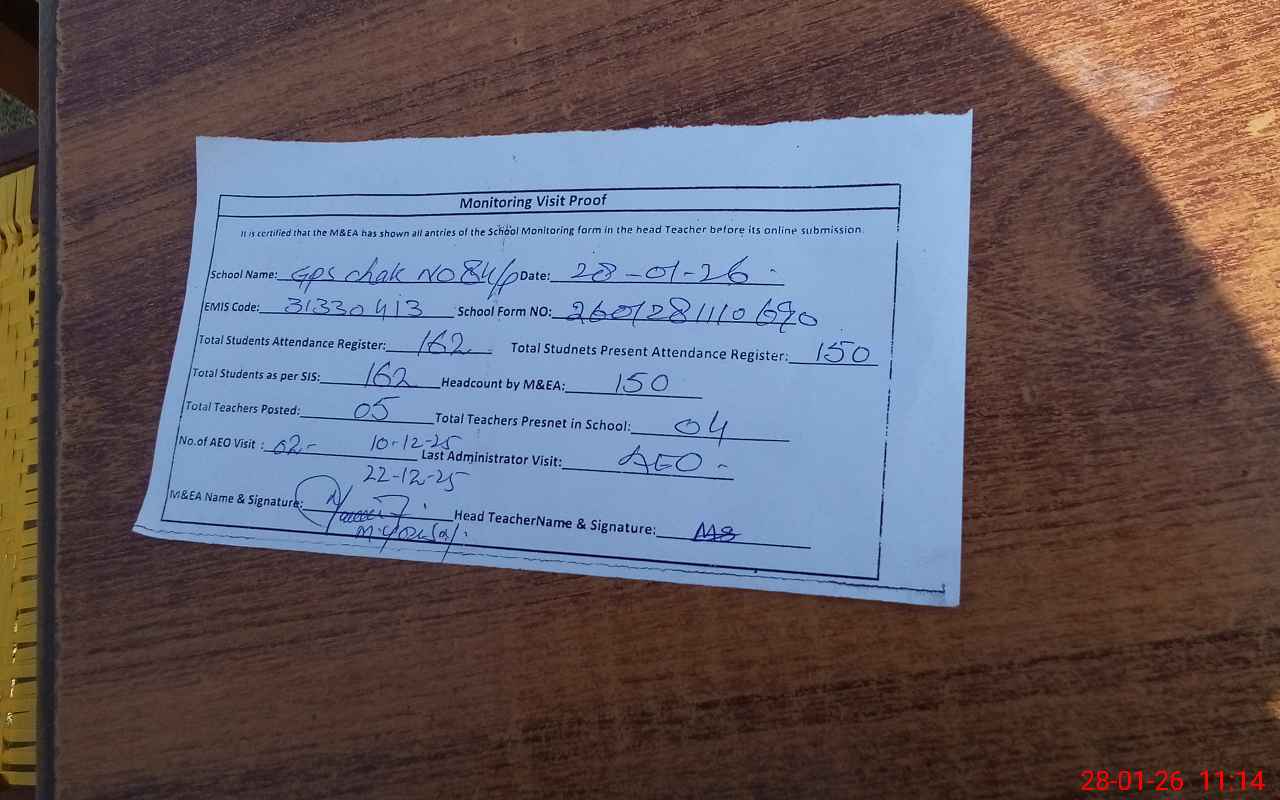 Monitoring Visit Proof
It is certified that the M&EA has shown all antries of the School Monitoring form in the head Teacher before its online submission.
School Name: GPS chak NO 84/P Date: 28-01-26
EMIS Code: 31330413 School Form NO: 2601281110690
Total Students Attendance Register: 162 Total Studnets Present Attendance Register: 150
Total Students as per SIS: 162 Headcount by M&EA: 150
Total Teachers Posted: 05 Total Teachers Presnet in School: 04
No.of AEO Visit : 02- 10-12-25 Last Administrator Visit: AEO -
22-12-25
M&EA Name & Signature: Head TeacherName & Signature:
28-01-26 11:14